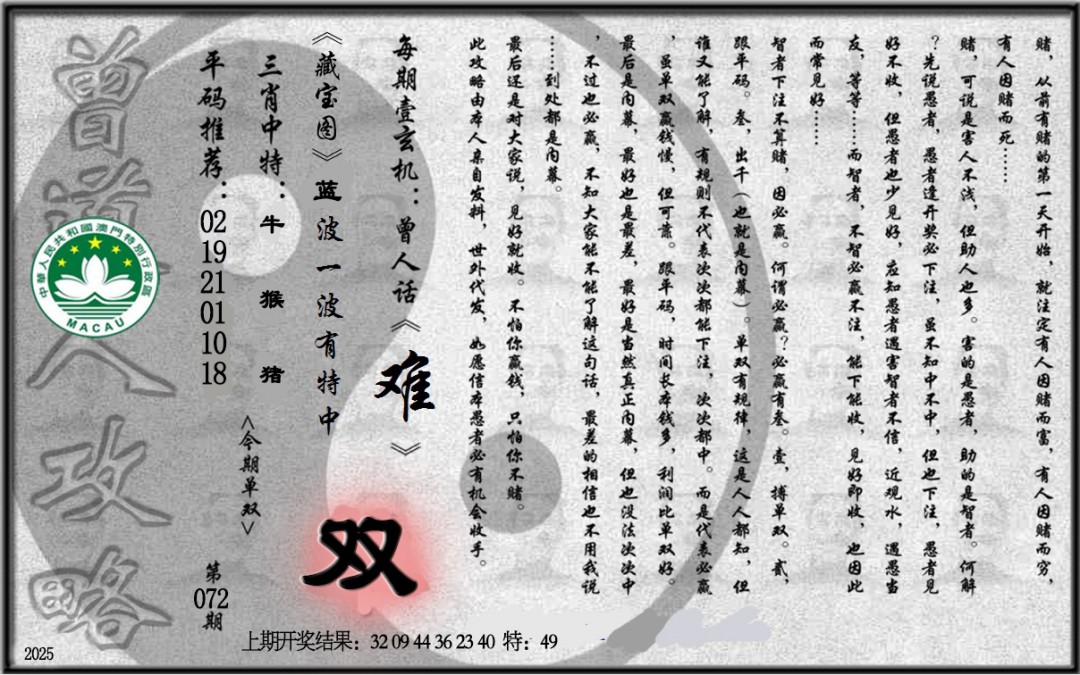 赌，从前有赌的第一天开始，就注定有人因赌而富，有人因赌而穷，
有人因赌而死……
赌，可说是害人不浅，但助人也多。害的是愚者，助的是智者。何解
？先说愚者，愚者逢开奖必下注，虽不知中不中，但也下注，愚者见
好不收，但愚者也少见好，应知愚者遇害智者不信，近观水，遇愚当
友，等等……而智者，不智必赢不注，能下能收，见好即收，也因此
而常见好……
智者下注不算赌，因必赢。何谓必赢？必赢有叁。壹，搏单双。贰，
跟平码。叁，出千（也就是内幕）。单双有规律，这是人人都知，但
谁又能了解，有规则不代表次次都能下注，次次都中。而是代表必赢
，虽单双赢钱慢，但可靠。跟平码，时间长本钱多，利润比单双好。
最后是内幕，最好也是最差，最好是当然真正内幕，但也没法次次中
，不过也必赢，不知大家能不能了解这句话，最差的相信也不用我说
……到处都是内幕。
最后还是对大家说，见好就收。不怕你赢钱，只怕你不赌。
此攻略由本人亲自发料，世外代发，如愿信本愚者必有机会收手。
每期壹玄机：曾人话《难》
《藏宝图》蓝波一波有特中
双
三肖中特：牛 猴 猪
<今期单双>
平码推荐：02 19 21 01 10 18
第072期
曾道人攻略
中華人民共和國澳門特別行政區
MACAU
上期开奖结果：32 09 44 36 23 40 特：49
2025